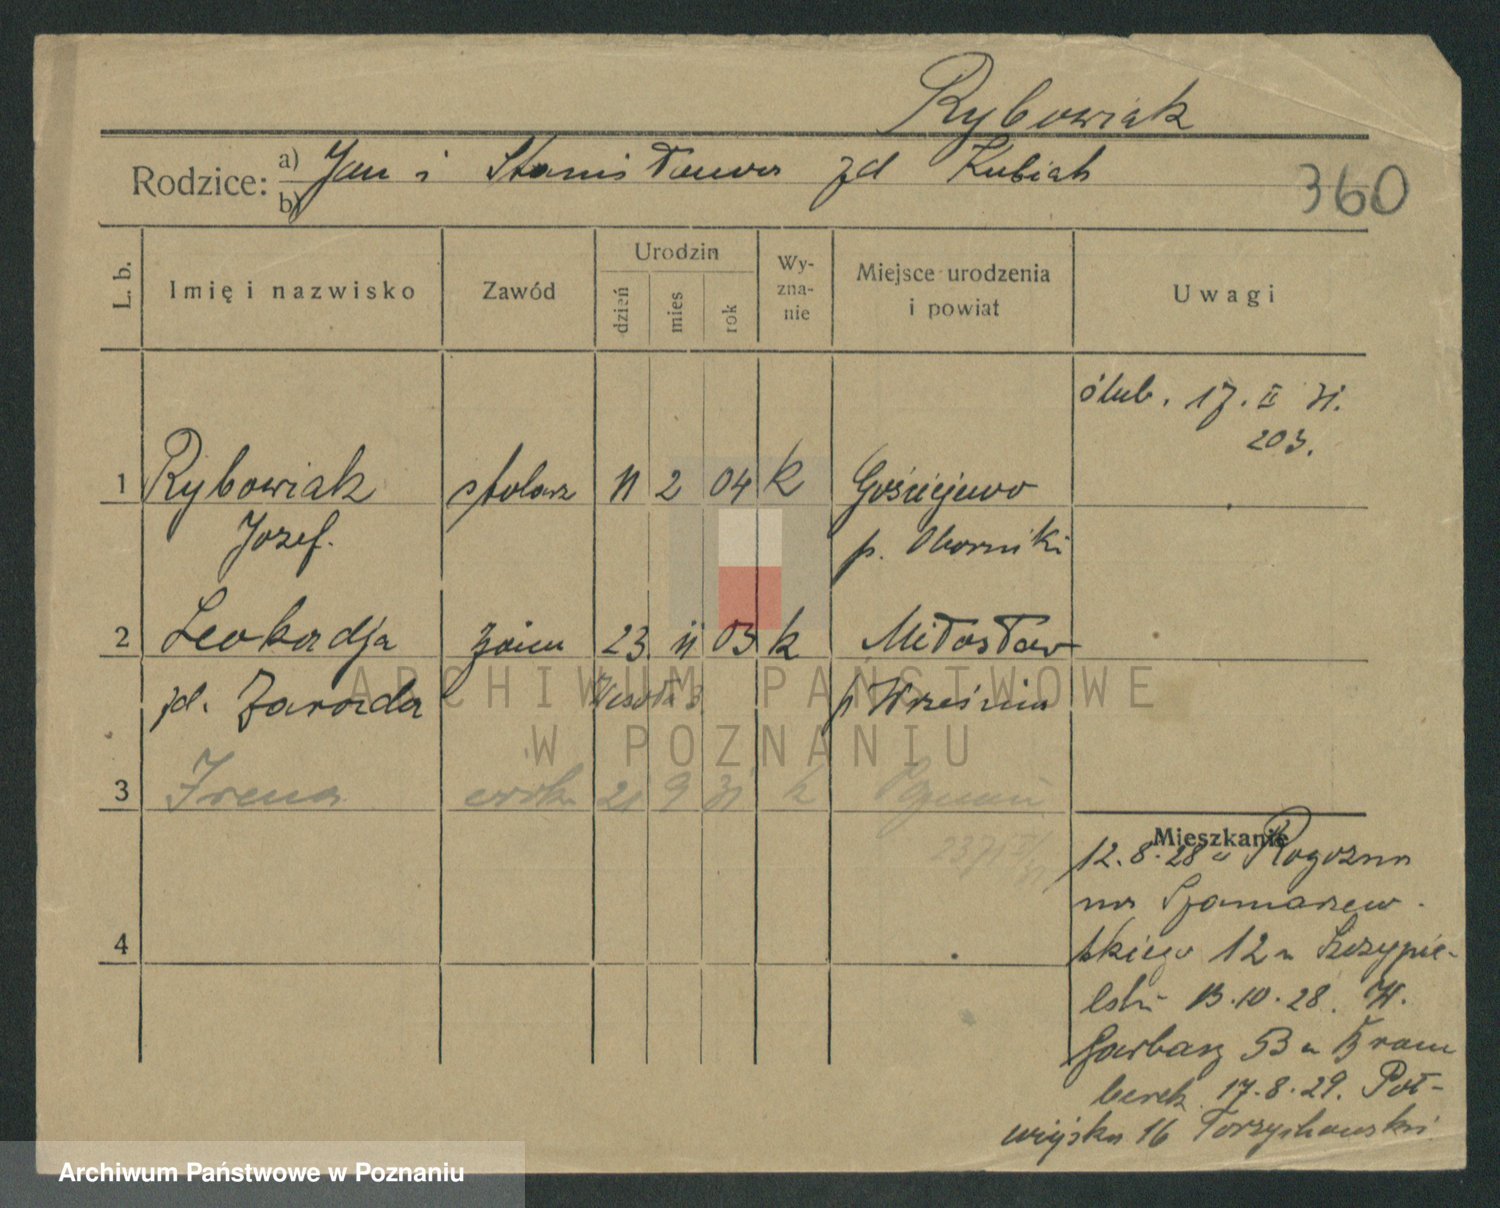 Rybowiak
Rodzice: a) Jan i Stanisława zd Kubiak
b)
360
L. b.
Imię i nazwisko
Zawód
Urodzin
dzień
mies
rok
Wy-
zna-
nie
Miejsce urodzenia
i powiat
Uwagi
ślub. 17. II 31.
203.
1 Rybowiak stolarz 11 2 04 k Gościejewo
Józef. p. Oborniki
2 Leokadja żona 23. 11 03 k Miłosław
zd. Zaradna Wesoła 3 p Września
3 Irena córka 21 9 31 k Poznań
2371
4
Mieszkanie
12.8.28 u Rogozna
na Szamarzew-
skiego 12 u Szczypie-
13.10.28. W.
Garbary 53 u Bram
berek 17.8.29. Pół-
wiejska 16 Torzychowski
ARCHIWUM PAŃSTWOWE
W POZNANIU
Archiwum Państwowe w Poznaniu